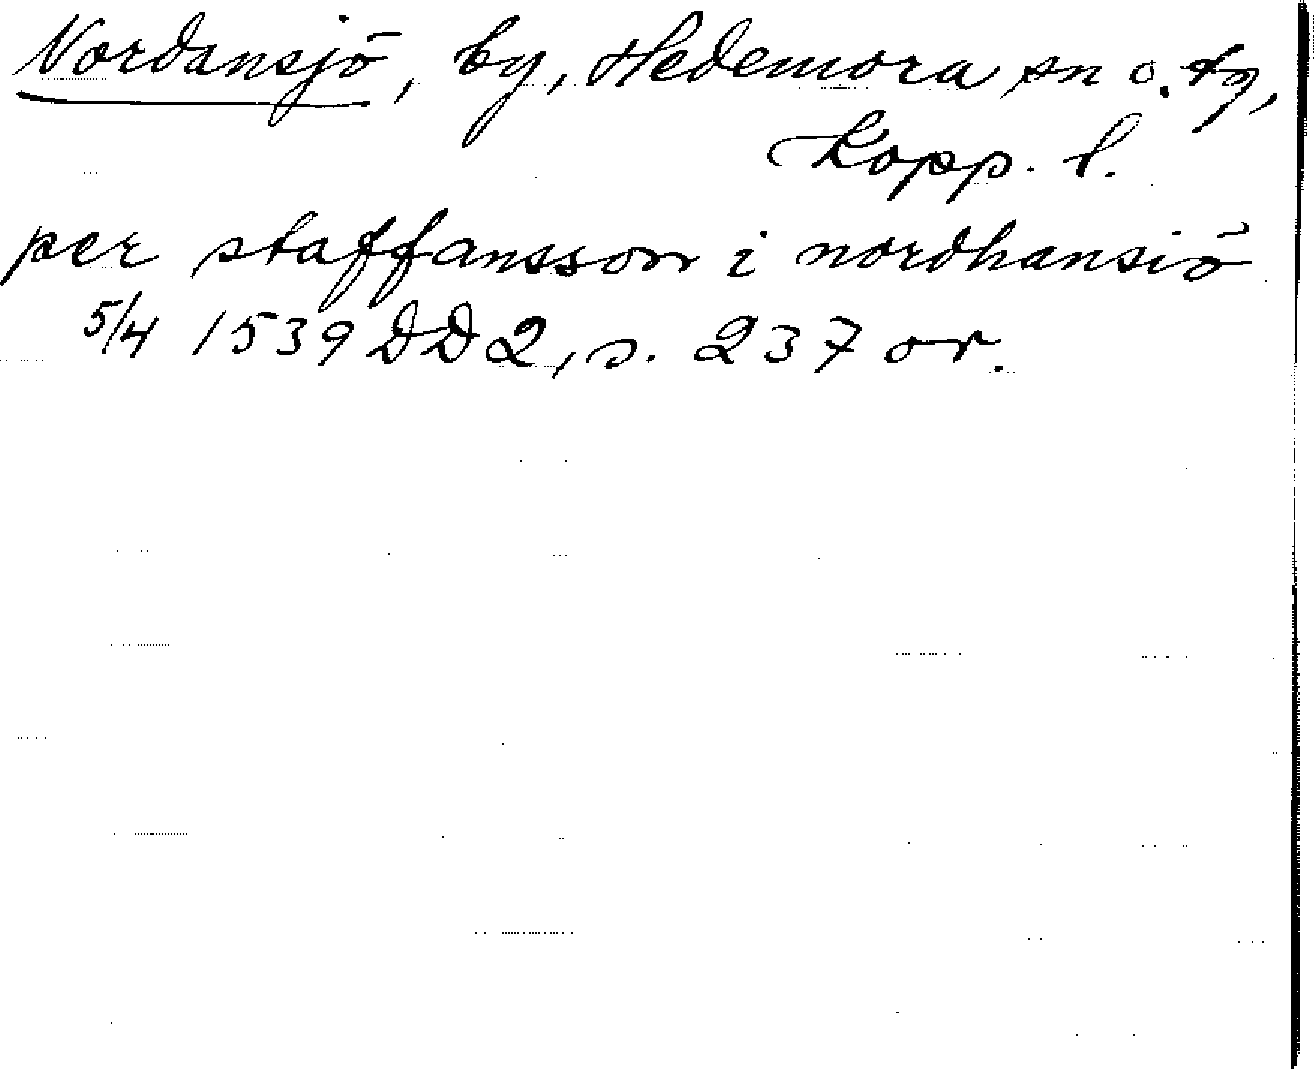 Nordansjö, by, Hedemora sn o. tg,
Kopp. l.
per staffansson i nordhansiö
5/4 1539 DD 2, s. 237 or.